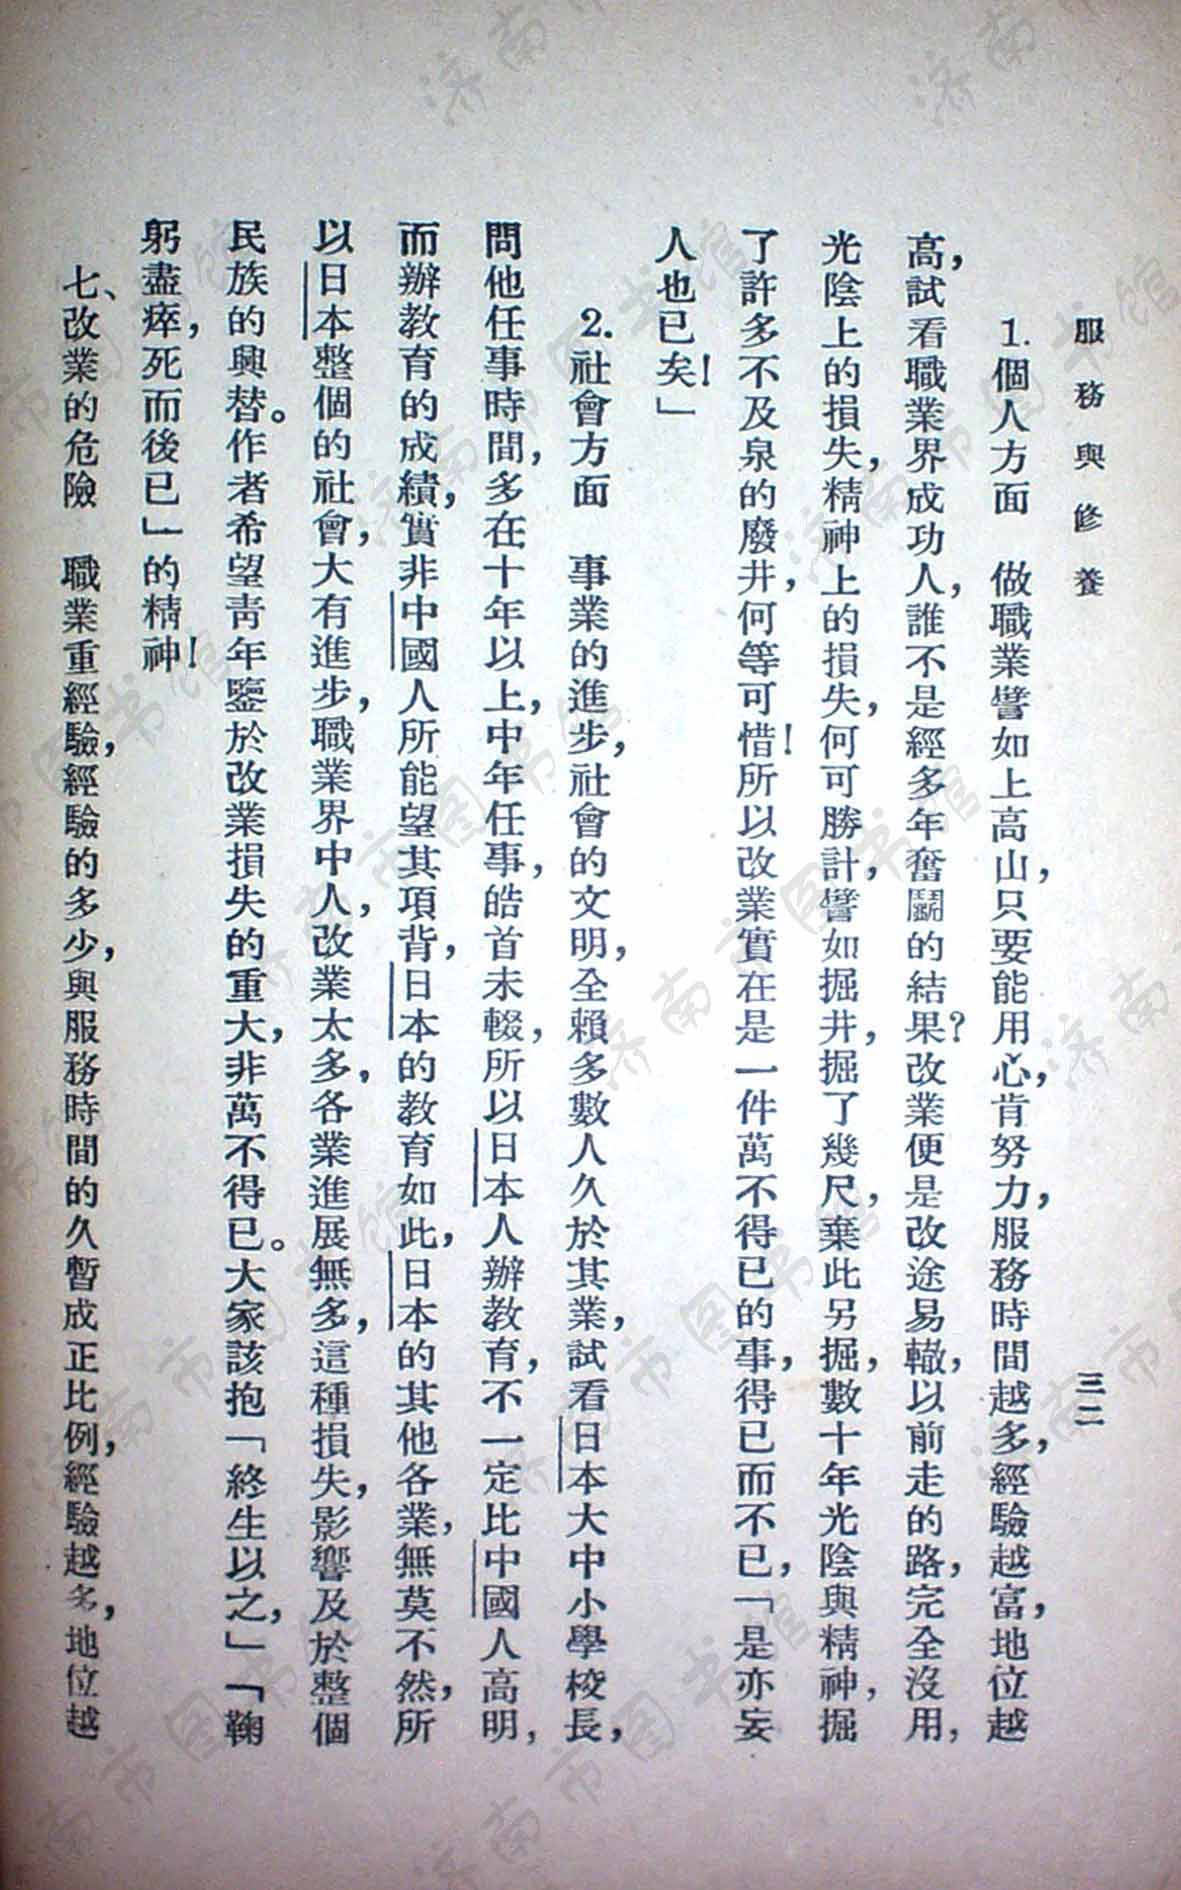 服務與修養
三二
1.個人方面　做職業譬如上高山，只要能用心，肯努力，服務時間越多，經驗越富，地位越
高，試看職業界成功人，誰不是經多年奮鬭的結果？改業便是改途易轍，以前走的路，完全沒用，
光陰上的損失，精神上的損失，何可勝計，譬如掘井，掘了幾尺，棄此另掘，數十年光陰與精神，掘
了許多不及泉的廢井，何等可惜！所以改業實在是一件萬不得已的事，得已而不已，「是亦妄
人也已矣！」
2.社會方面　事業的進步，社會的文明，全賴多數人久於其業，試看日本大中小學校長，
問他任事時間，多在十年以上，中年任事，皓首未輟，所以日本人辦教育，不一定比中國人高明，
而辦教育的成績，實非中國人所能望其項背，日本的教育如此，日本的其他各業，無莫不然，所
以日本整個的社會，大有進步，職業界中人，改業太多，各業進展無多，這種損失，影響及於整個
民族的興替。作者希望青年鑒於改業損失的重大，非萬不得已。大家該抱「終生以之，」「鞠
躬盡瘁，死而後已」的精神！
七、改業的危險　職業重經驗，經驗的多少，與服務時間的久暫成正比例，經驗越多，地位越
济南市图书馆